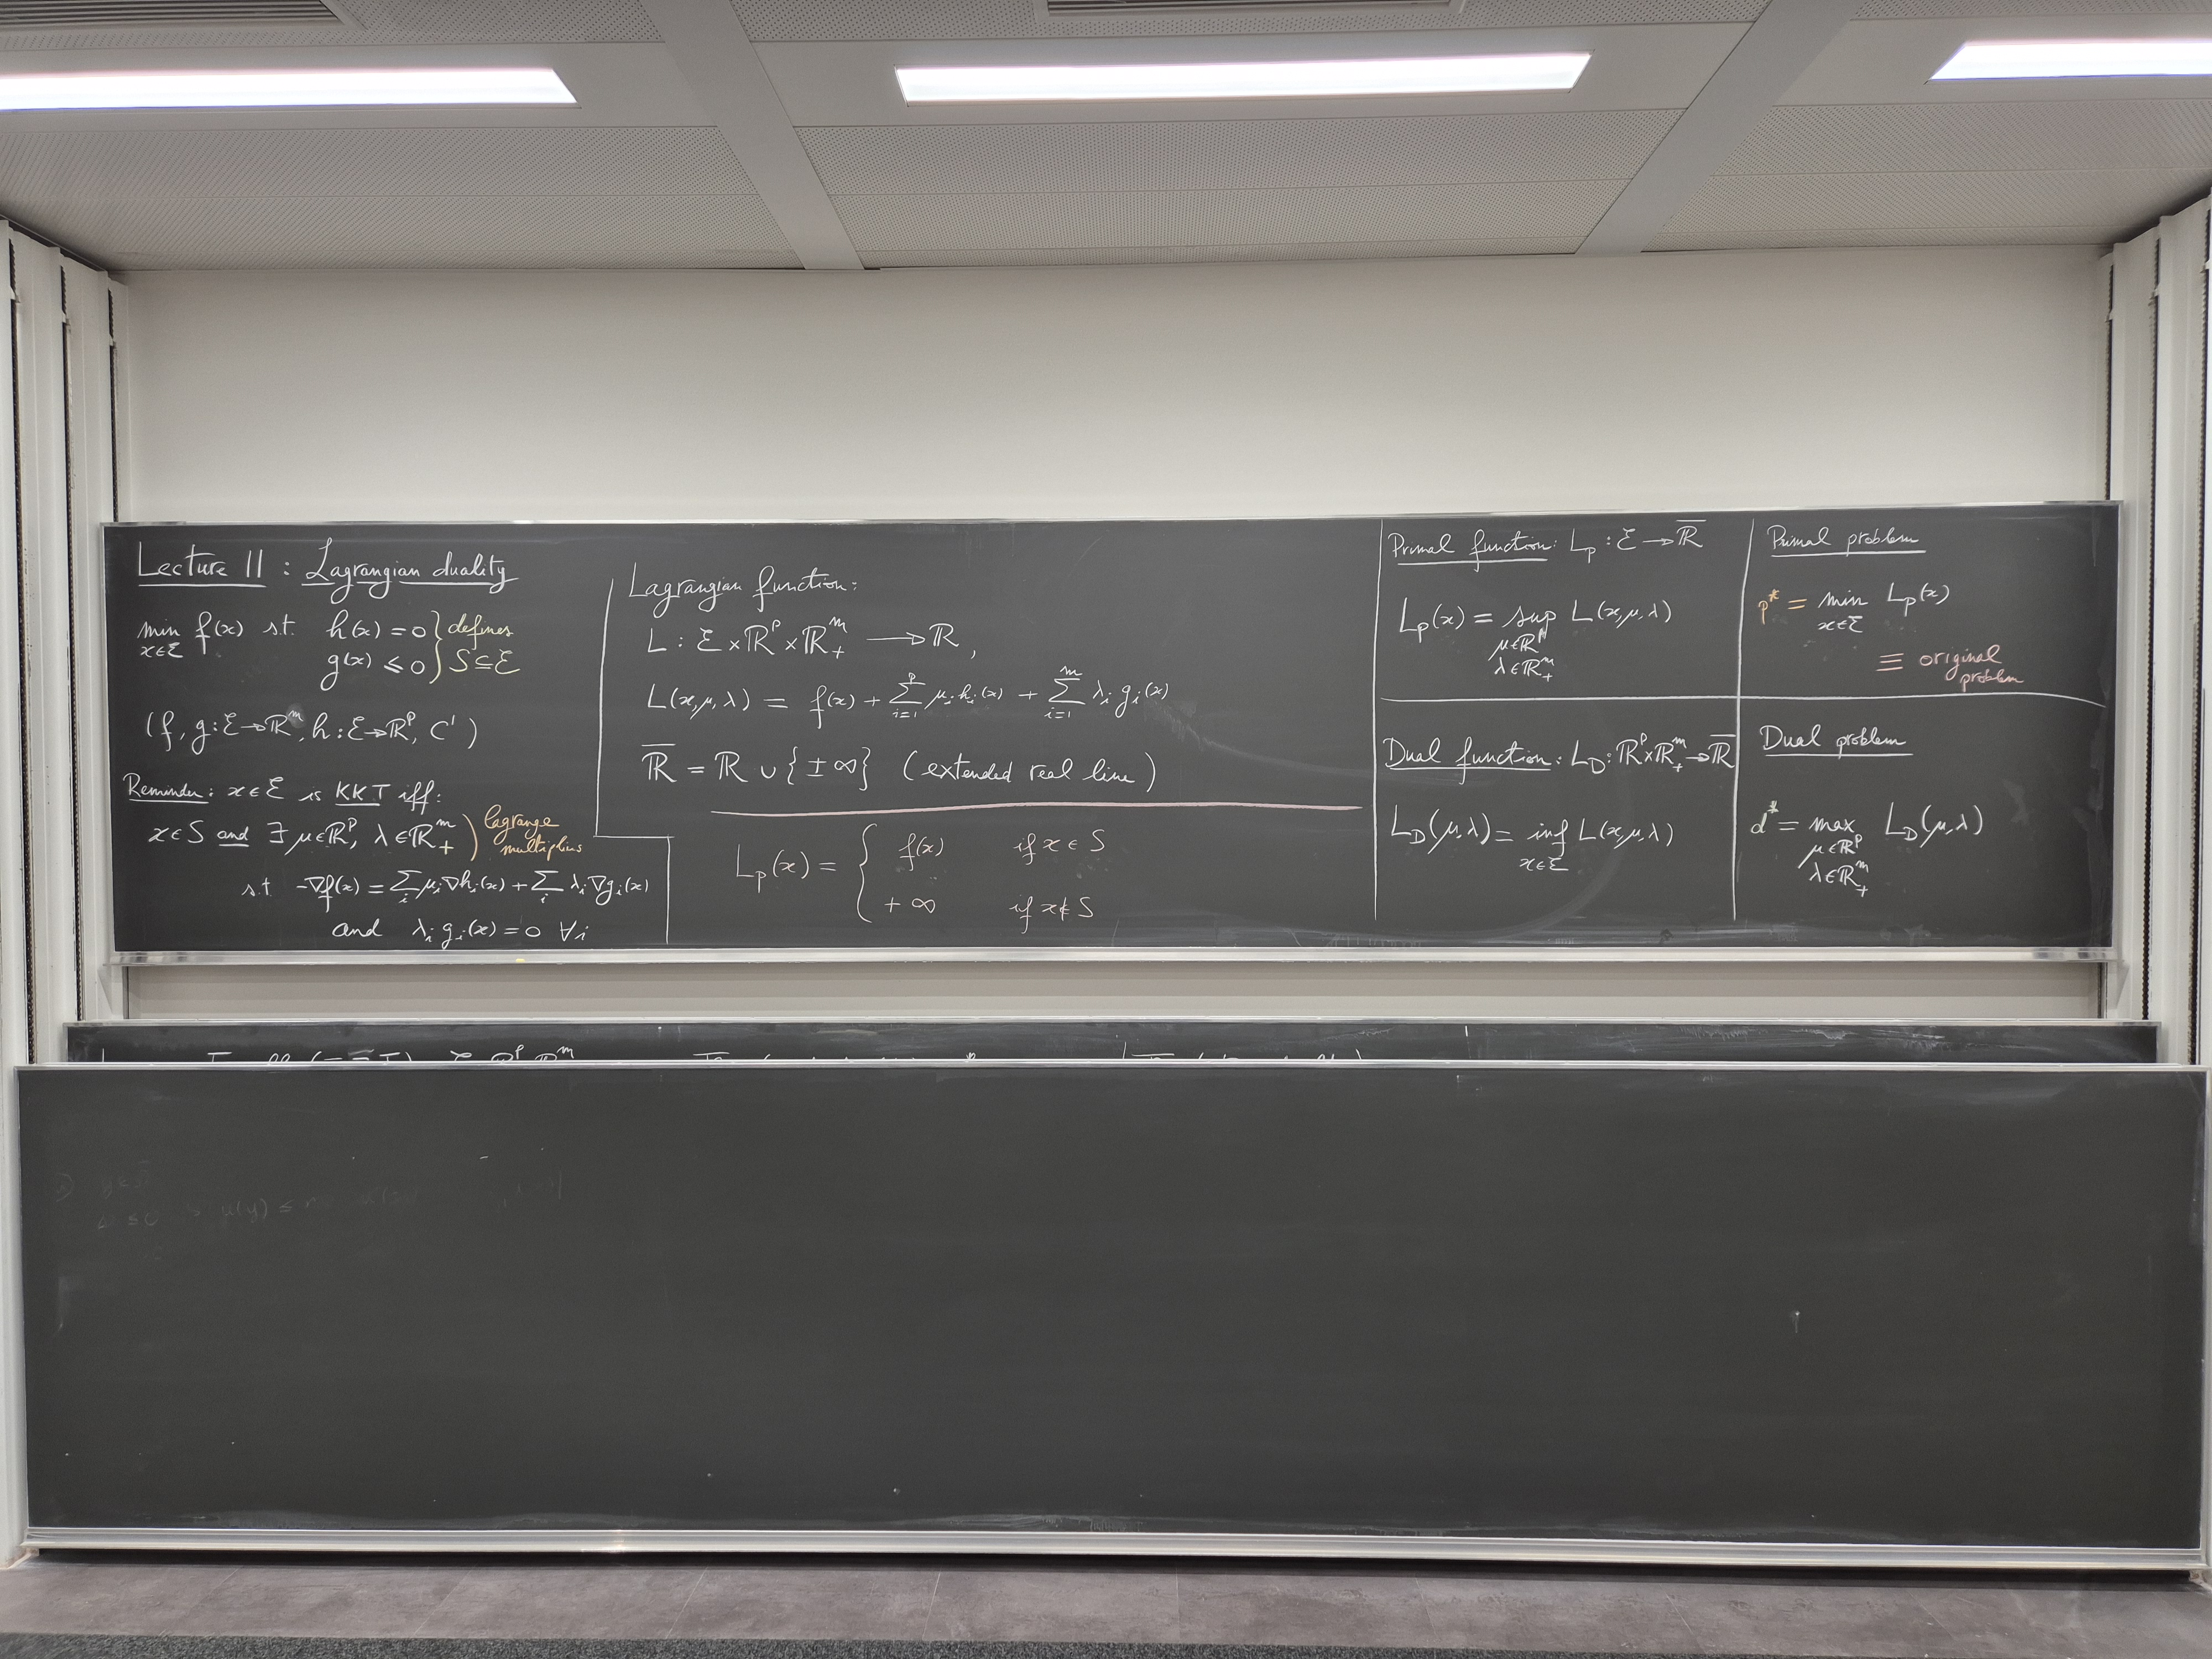 Lecture 11 : Lagrangian duality
min f(x) s.t. h(x) = 0 } defines
x∈ℰ g(x) ≤ 0 } S ⊆ ℰ
(f, g : ℰ → ℝ^m, h : ℰ → ℝ^p, C¹)
Reminder : x ∈ ℰ is KKT iff :
x ∈ S and ∃ μ ∈ ℝ^p, λ ∈ ℝ^m_+ ) lagrange
multipliers
s.t -∇f(x) = Σ_i μ_i ∇h_i(x) + Σ_i λ_i ∇g_i(x)
and λ_i g_i(x) = 0 ∀i
Lagrangian function :
L : ℰ × ℝ^p × ℝ^m_+ → ℝ ,
L(x, μ, λ) = f(x) + Σ_{i=1}^p μ_i h_i(x) + Σ_{i=1}^m λ_i g_i(x)
ℝ̅ = ℝ ∪ {± ∞} (extended real line)
L_P(x) = { f(x) if x ∈ S
+ ∞ if x ∉ S
Primal function : L_P : ℰ → ℝ̅
L_P(x) = sup L(x, μ, λ)
μ∈ℝ^p
λ∈ℝ^m_+
Primal problem
p* = min L_P(x)
x∈ℰ
≡ original
problem
Dual function : L_D : ℝ^p × ℝ^m_+ → ℝ̅
L_D(μ, λ) = inf L(x, μ, λ)
x∈ℰ
Dual problem
d* = max L_D(μ, λ)
μ∈ℝ^p
λ∈ℝ^m_+